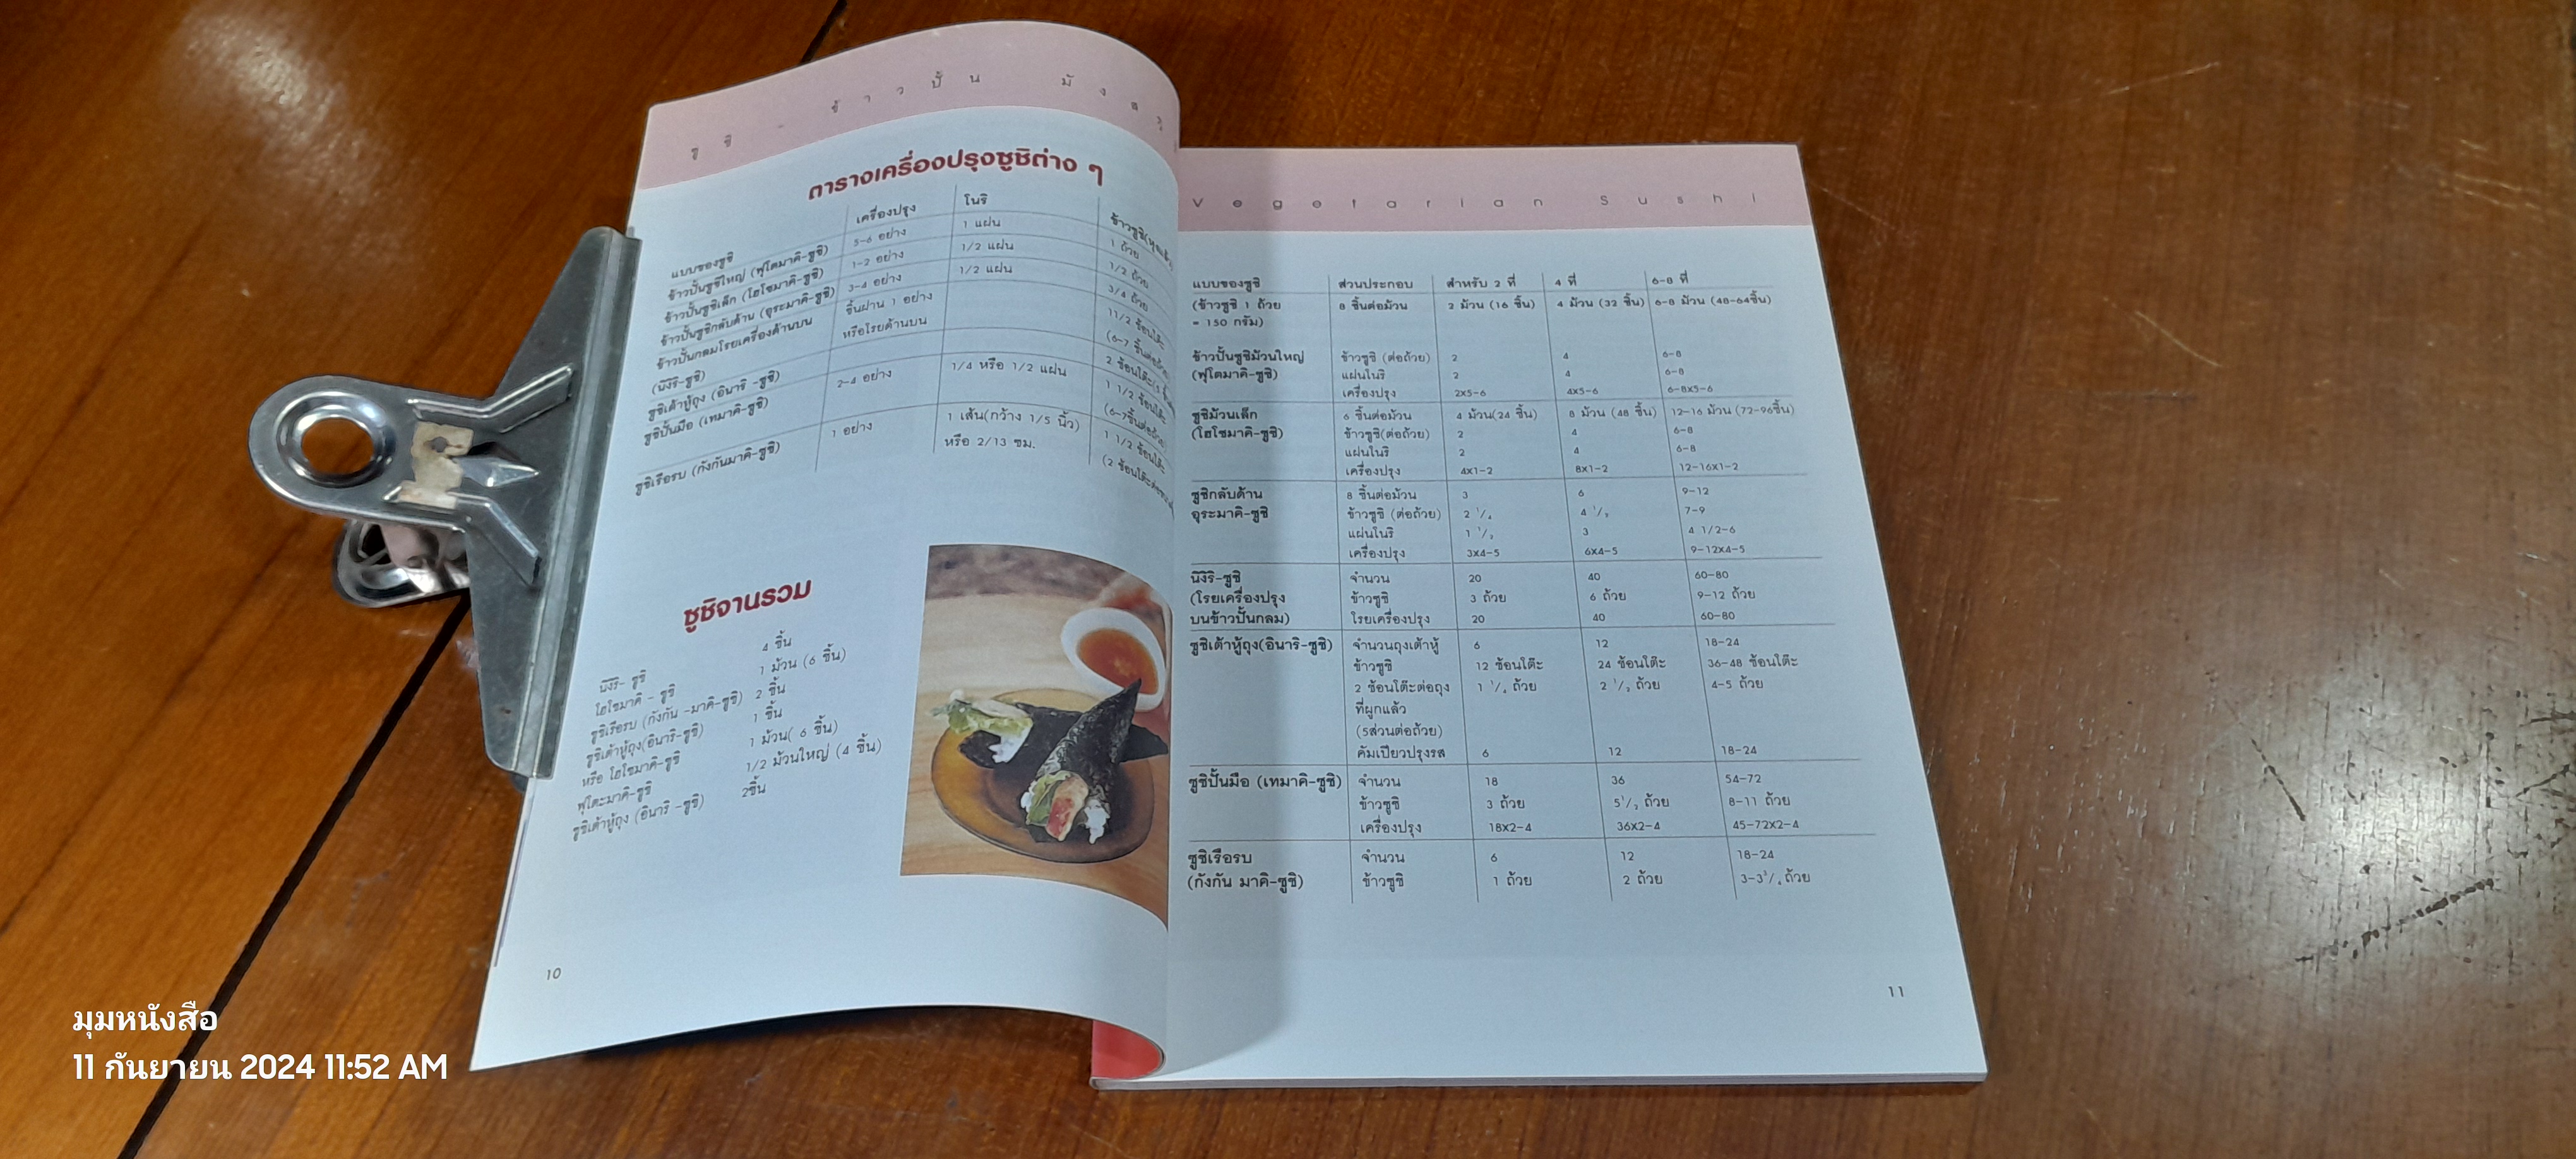 ซูชิ - ข้าวปั้น มังสวิ
ตารางเครื่องปรุงซูชิต่าง ๆ
แบบของซูชิ เครื่องปรุง โนริ ข้าวซูชิ(หุงแล้ว)
ข้าวปั้นซูชิใหญ่ (ฟุโตมาคิ-ซูชิ) 5-6 อย่าง 1 แผ่น 1 ถ้วย
ข้าวปั้นซูชิเล็ก (โฮโซมาคิ-ซูชิ) 1-2 อย่าง 1/2 แผ่น 1/2 ถ้วย
ข้าวปั้นซูชิกลับด้าน (อุระมาคิ-ซูชิ) 3-4 อย่าง 1/2 แผ่น 3/4 ถ้วย
ข้าวปั้นกลมโรยเครื่องด้านบน ชิ้นฝาน 1 อย่าง 11/2 ช้อนโต๊ะ
(นิงิริ-ซูชิ) หรือโรยด้านบน (6-7 ชิ้นต่อถ้วย)
ซูชิเต้าหู้ถุง (อินาริ -ซูชิ) 2 ช้อนโต๊ะ(5
ซูชิปั้นมือ (เทมาคิ-ซูชิ) 2-4 อย่าง 1/4 หรือ 1/2 แผ่น 1 1/2 ช้อนโต๊ะ
(6-7ชิ้นต่อถ้วย)
ซูชิเรือรบ (กังกันมาคิ-ซูชิ) 1 อย่าง 1 เส้น(กว้าง 1/5 นิ้ว) 1 1/2 ช้อนโต๊ะ
หรือ 2/13 ซม. (2 ช้อนโต๊ะ
ซูชิจานรวม
นิงิริ- ซูชิ 4 ชิ้น
โฮโซมาคิ - ซูชิ 1 ม้วน (6 ชิ้น)
ซูชิเรือรบ (กังกัน -มาคิ-ซูชิ) 2 ชิ้น
ซูชิเต้าหู้ถุง(อินาริ-ซูชิ) 1 ชิ้น
หรือ โฮโซมาคิ-ซูชิ 1 ม้วน( 6 ชิ้น)
ฟุโตะมาคิ-ซูชิ 1/2 ม้วนใหญ่ (4 ชิ้น)
ซูชิเต้าหู้ถุง (อินาริ -ซูชิ) 2ชิ้น
10
Vegetarian Sushi
แบบของซูชิ ส่วนประกอบ สำหรับ 2 ที่ 4 ที่ 6-8 ที่
(ข้าวซูชิ 1 ถ้วย 8 ชิ้นต่อม้วน 2 ม้วน (16 ชิ้น) 4 ม้วน (32 ชิ้น) 6-8 ม้วน (48-64ชิ้น)
= 150 กรัม)
ข้าวปั้นซูชิม้วนใหญ่ ข้าวซูชิ (ต่อถ้วย) 2 4 6-8
(ฟุโตมาคิ-ซูชิ) แผ่นโนริ 2 4 6-8
เครื่องปรุง 2x5-6 4x5-6 6-8x5-6
ซูชิม้วนเล็ก 6 ชิ้นต่อม้วน 4 ม้วน(24 ชิ้น) 8 ม้วน (48 ชิ้น) 12-16 ม้วน (72-96ชิ้น)
(โฮโซมาคิ-ซูชิ) ข้าวซูชิ(ต่อถ้วย) 2 4 6-8
แผ่นโนริ 2 4 6-8
เครื่องปรุง 4x1-2 8x1-2 12-16x1-2
ซูชิกลับด้าน 8 ชิ้นต่อม้วน 3 6 9-12
อุระมาคิ-ซูชิ ข้าวซูชิ (ต่อถ้วย) 2 1/4 4 1/2 7-9
แผ่นโนริ 1 1/2 3 4 1/2-6
เครื่องปรุง 3x4-5 6x4-5 9-12x4-5
นิงิริ-ซูชิ จำนวน 20 40 60-80
(โรยเครื่องปรุง ข้าวซูชิ 3 ถ้วย 6 ถ้วย 9-12 ถ้วย
บนข้าวปั้นกลม) โรยเครื่องปรุง 20 40 60-80
ซูชิเต้าหู้ถุง(อินาริ-ซูชิ) จำนวนถุงเต้าหู้ 6 12 18-24
ข้าวซูชิ 12 ช้อนโต๊ะ 24 ช้อนโต๊ะ 36-48 ช้อนโต๊ะ
2 ช้อนโต๊ะต่อถุง 1 1/4 ถ้วย 2 1/2 ถ้วย 4-5 ถ้วย
ที่ผูกแล้ว
(5ส่วนต่อถ้วย)
คัมเปียวปรุงรส 6 12 18-24
ซูชิปั้นมือ (เทมาคิ-ซูชิ) จำนวน 18 36 54-72
ข้าวซูชิ 3 ถ้วย 5 1/2 ถ้วย 8-11 ถ้วย
เครื่องปรุง 18x2-4 36x2-4 45-72x2-4
ซูชิเรือรบ จำนวน 6 12 18-24
(กังกัน มาคิ-ซูชิ) ข้าวซูชิ 1 ถ้วย 2 ถ้วย 3-3 3/4 ถ้วย
11
มุมหนังสือ
11 กันยายน 2024 11:52 AM